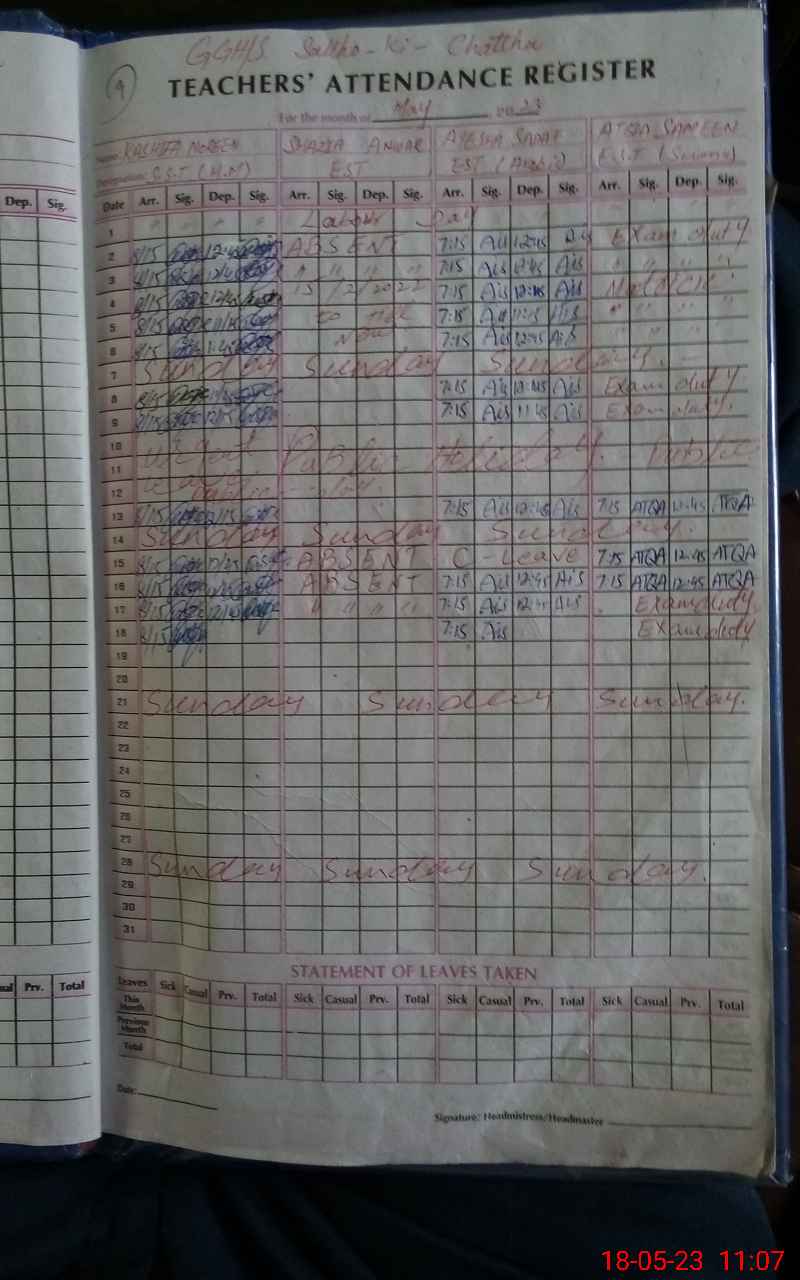 GGHS Saltho-Ki-Chattha
9
TEACHERS' ATTENDANCE REGISTER
For the month of May, 2023
Name: KASHIFA NOREEN SHAZIA ANWAR AYESHA SADAF ATQA SAMEEN
Designation: S.S.T (H.M) EST EST (Arabic) E.S.T
Dep. Sig. Date Arr. Sig. Dep. Sig. Arr. Sig. Dep. Sig. Arr. Sig. Dep. Sig. Arr. Sig. Dep. Sig.
1 Labour Day
2 8/15 12:45 ABSENT 7:15 Ais 12:45 Exam duty
3 8/15 12/45 " " " " 7:15 Ais 12:45 Ais " " " "
4 8/15 12/45 15/2/2022 7:15 Ais 12:45 Ais
5 8/15 11/15 to till 7:15 Ais 11:15 Ais " " " "
6 8/15 1:45 Now 7:15 Ais 12:45 Ais " " " "
7 Sunday Sunday Sunday
8 8/15 7:15 Ais 12:45 Ais Exam duty
9 8/15 12/15 7:15 Ais 11:45 Ais Exam duty.
10
11 Public Holiday. Public
12 Public
13 8/15 12/15 7:15 Ais 12:45 Ais 7:15 ATQA 12:45 ATQA
14 Sunday Sunday Sunday.
15 8/15 ABSENT C-Leave 7:15 ATQA 12:45 ATQA
16 8/15 ABSENT 7:15 Ais 12:45 Ais 7:15 ATQA 12:45 ATQA
17 8/15 12/15 " " " " 7:15 Ais 12:45 Ais Exam duty
18 8/15 7:15 Ais Exam duty
19
20
21 Sunday Sunday Sunday.
22
23
24
25
26
27
28 Sunday Sunday Sunday.
29
30
31
STATEMENT OF LEAVES TAKEN
Prv. Total Leaves Sick Casual Prv. Total Sick Casual Prv. Total Sick Casual Prv. Total Sick Casual Prv. Total
This Month
Previous Month
Total
Date:
Signature: Headmistress/Headmaster
18-05-23 11:07